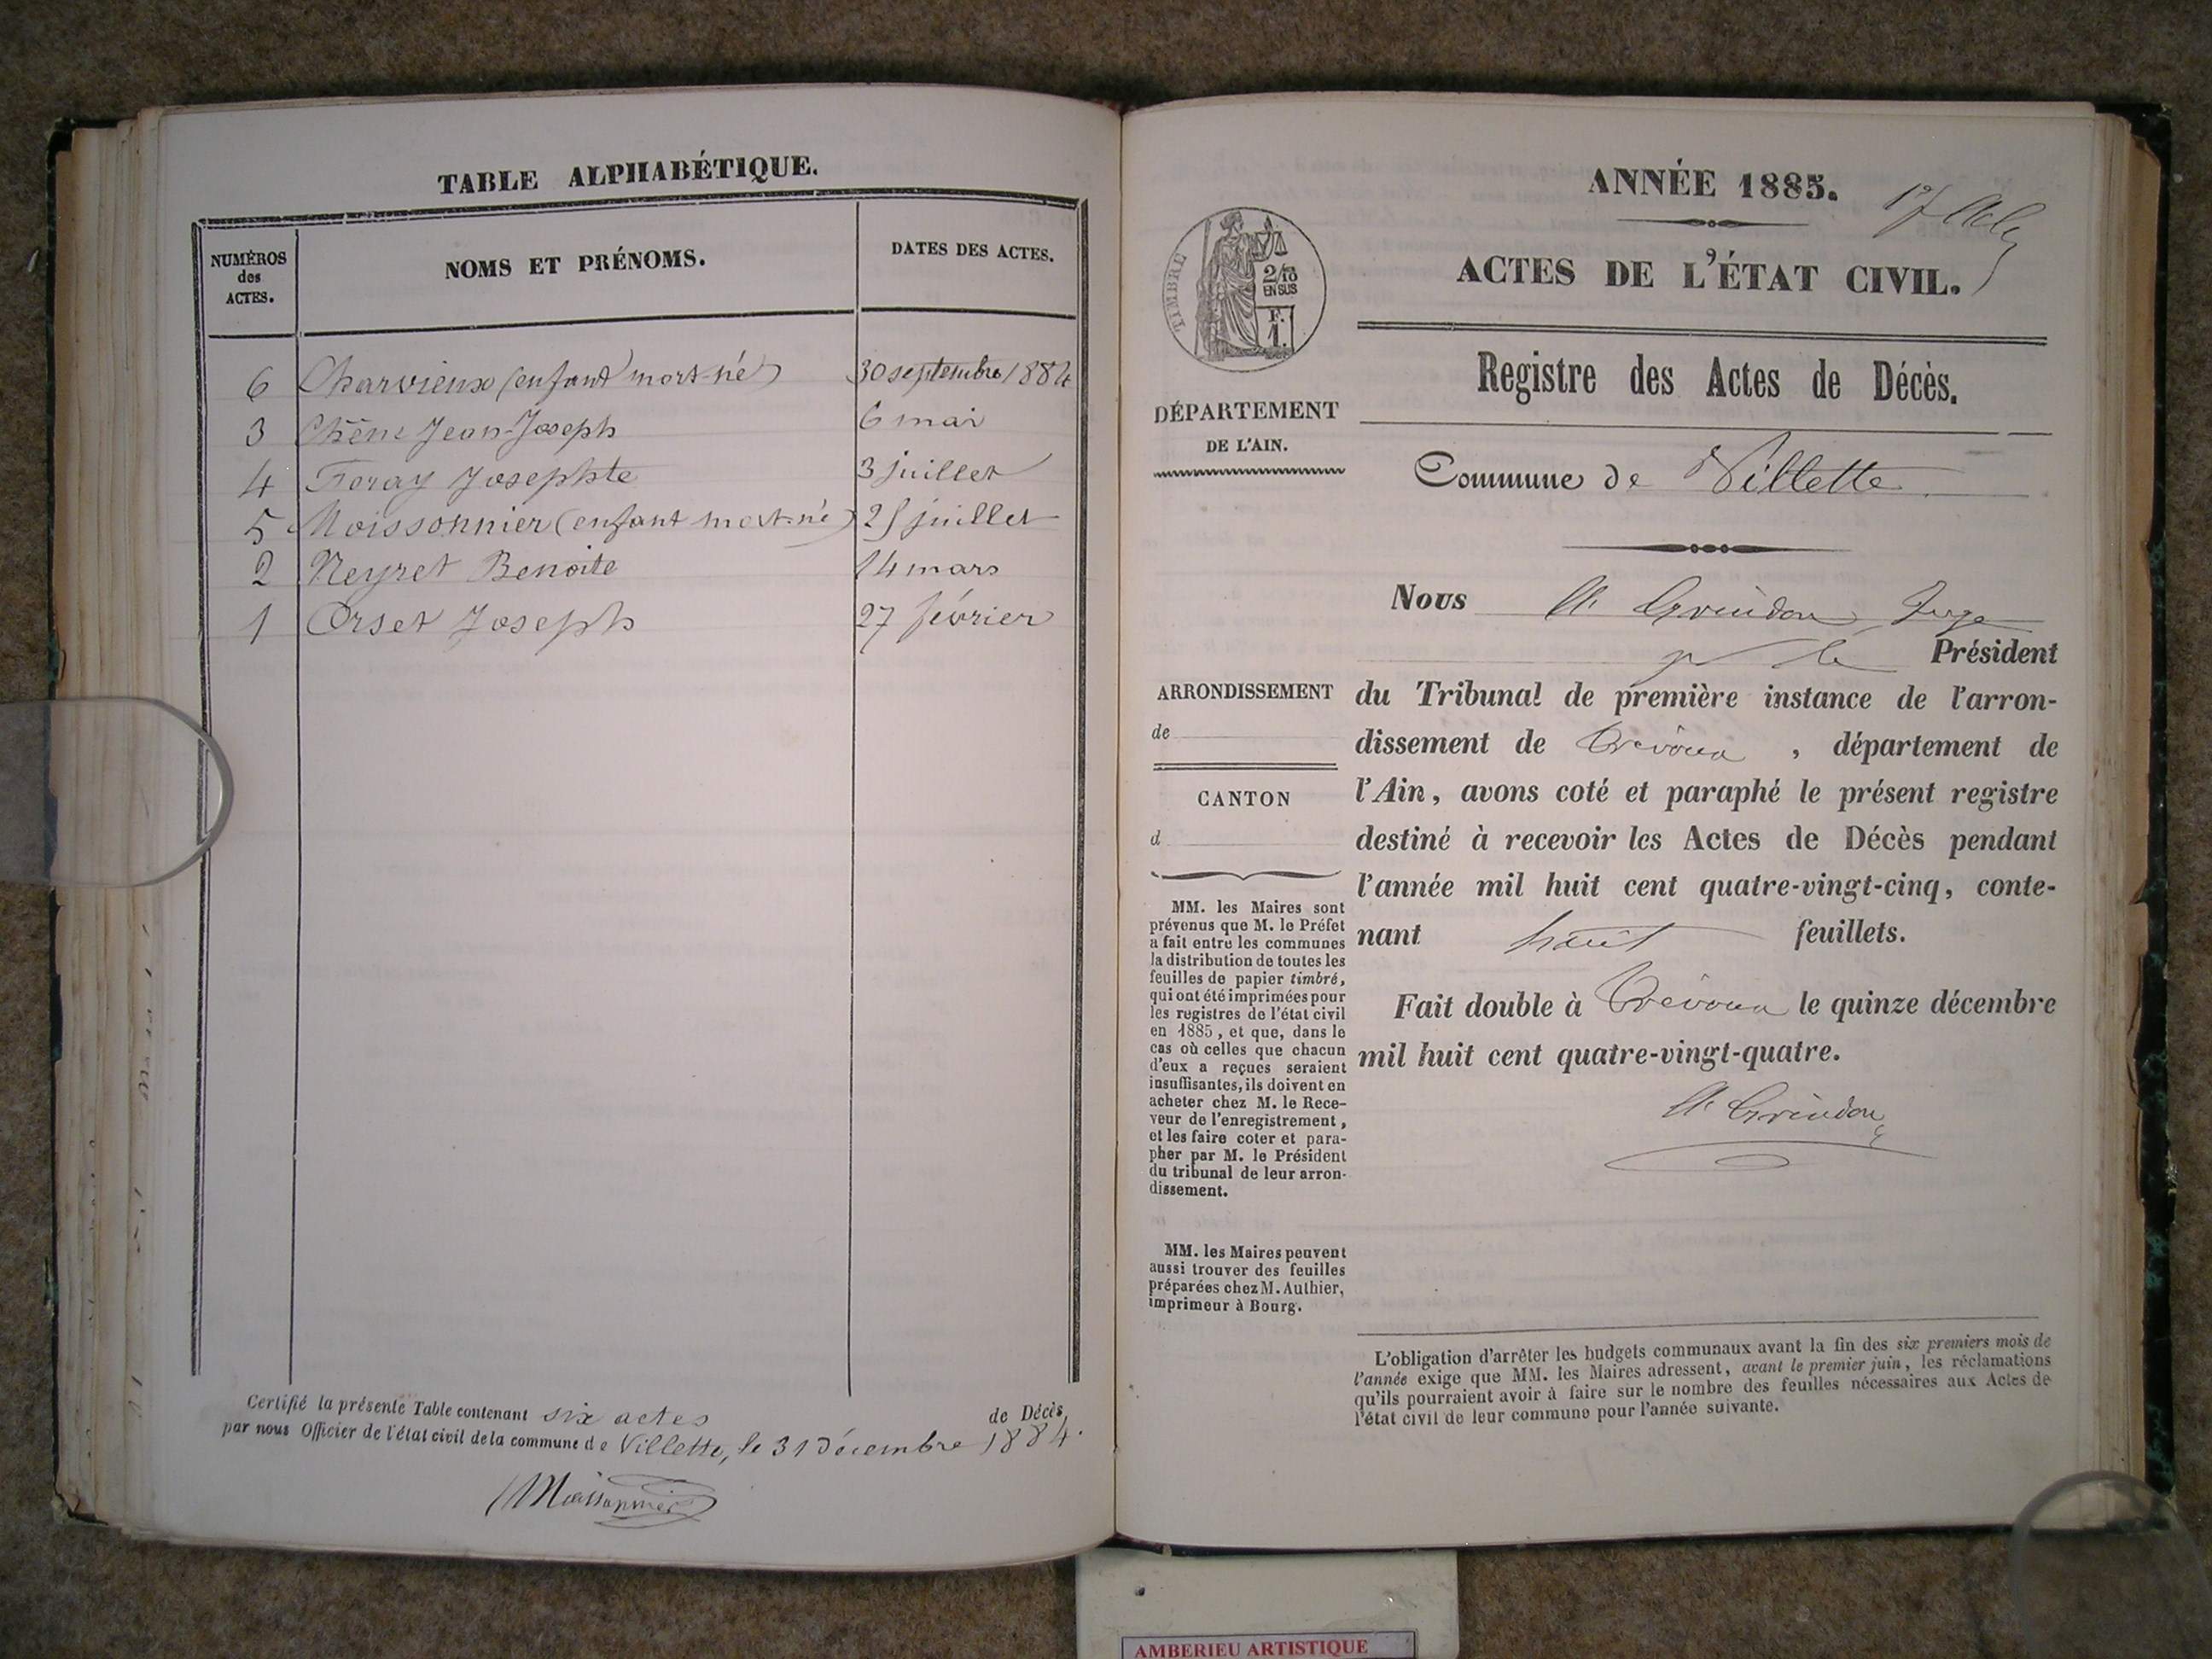 TABLE ALPHABÉTIQUE.
NUMÉROS des ACTES.
NOMS ET PRÉNOMS.
DATES DES ACTES.
6 Charvieux (enfant mort-né) 30 septembre 1884
3 Chêne Jean-Joseph 6 mai
4 Foray Josephte 3 juillet
5 Moissonnier (enfant mort-né) 25 juillet
2 Neyret Benoite 14 mars
1 Orset Joseph 27 février
Certifié la présente Table contenant six actes de Décès,
par nous Officier de l'état civil de la commune de Villette, le 31 Décembre 1884.
Moissonnier
ANNÉE 1885.
ACTES DE L'ÉTAT CIVIL.
TIMBRE
2/10
EN SUS
F.
1.
DÉPARTEMENT
DE L'AIN.
Registre des Actes de Décès.
Commune de Villette
Nous A. Grindon, Juge
pr le Président
ARRONDISSEMENT
de
CANTON
d
du Tribunal de première instance de l'arron-
dissement de Trévoux, département de
l'Ain, avons coté et paraphé le présent registre
destiné à recevoir les Actes de Décès pendant
l'année mil huit cent quatre-vingt-cinq, conte-
nant huit feuillets.
Fait double à Trévoux le quinze décembre
mil huit cent quatre-vingt-quatre.
A. Grindon
MM. les Maires sont
prévenus que M. le Préfet
a fait entre les communes
la distribution de toutes les
feuilles de papier timbré,
qui ont été imprimées pour
les registres de l'état civil
en 1885, et que, dans le
cas où celles que chacun
d'eux a reçues seraient
insuffisantes, ils doivent en
acheter chez M. le Rece-
veur de l'enregistrement,
et les faire coter et para-
pher par M. le Président
du tribunal de leur arron-
dissement.
MM. les Maires peuvent
aussi trouver des feuilles
préparées chez M. Authier,
imprimeur à Bourg.
L'obligation d'arrêter les budgets communaux avant la fin des six premiers mois de
l'année exige que MM. les Maires adressent, avant le premier juin, les réclamations
qu'ils pourraient avoir à faire sur le nombre des feuilles nécessaires aux Actes de
l'état civil de leur commune pour l'année suivante.
AMBERIEU ARTISTIQUE